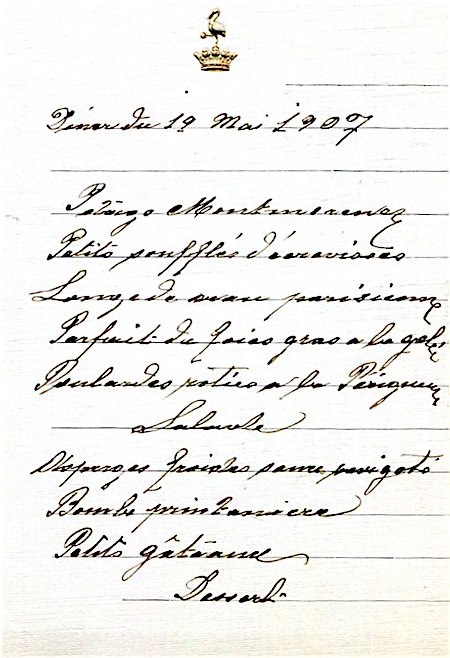 Dîner du 19 Mai 1907
Potage Montmorency
Petits soufflés d'écrevisses
Longe de veau parisienne
Parfait de foies gras à la gelée
Poulardes roties à la Périgueux
Salade
Asperges froides sauce ravigote
Bombe printanière
Petits gâteaux
Dessert